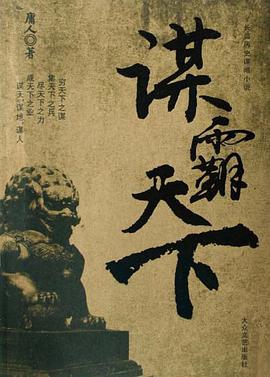 长篇历史谋略小说
谋霸天下
庸人◎著
穷天下之谋
集天下之兵
尽天下之力
成天下之业
谋天、谋地、谋人
大众文艺出版社